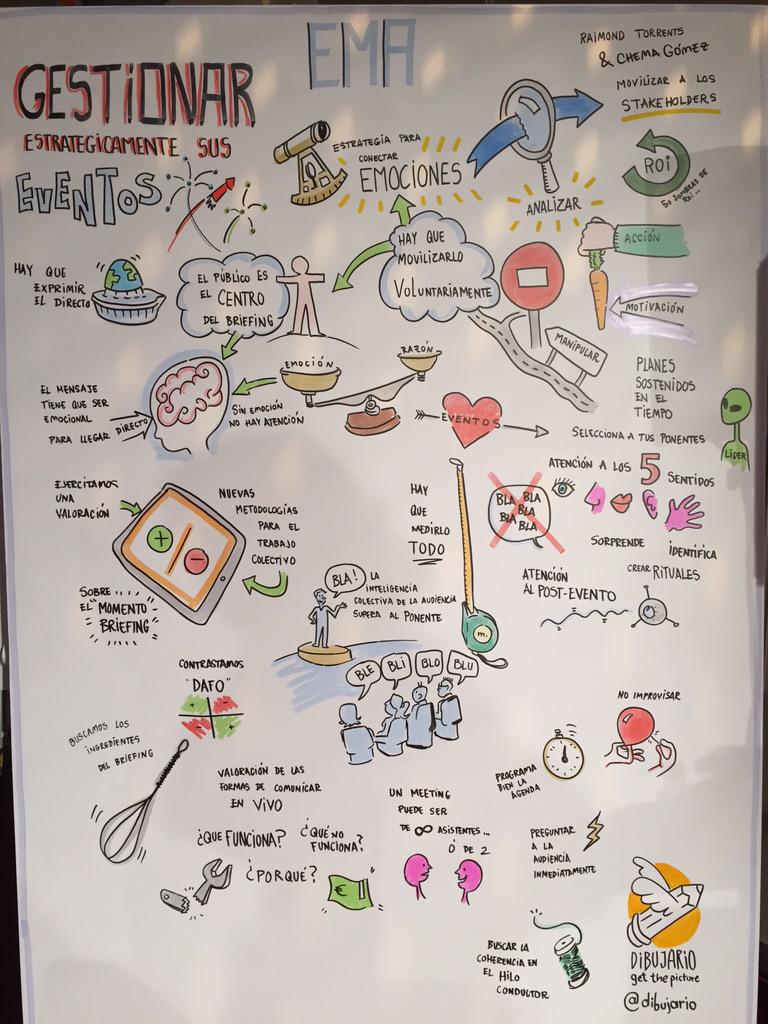 EMA
RAIMOND TORRENTS
& CHEMA GÓMEZ
GESTIONAR
ESTRATEGICAMENTE SUS
EVENTOS
ESTRATEGIA PARA
CONECTAR
EMOCIONES
ANALIZAR
MOVILIZAR A LOS
STAKEHOLDERS
ROI
50 SOMBRAS DE
ROI...
HAY QUE
EXPRIMIR
EL DIRECTO
EL PÚBLICO ES
EL CENTRO
DEL BRIEFING
HAY QUE
MOVILIZARLO
VOLUNTARIAMENTE
ACCIÓN
MOTIVACIÓN
MANIPULAR
EL MENSAJE
TIENE QUE SER
EMOCIONAL
PARA LLEGAR DIRECTO
EMOCIÓN
RAZÓN
SIN EMOCIÓN
NO HAY ATENCIÓN
EVENTOS
PLANES
SOSTENIDOS
EN EL
TIEMPO
SELECCIONA A TUS PONENTES
LIDER
EJERCITAMOS
UNA
VALORACIÓN
+
-
NUEVAS
METODOLOGÍAS
PARA EL
TRABAJO
COLECTIVO
SOBRE
EL "MOMENTO
BRIEFING"
HAY
QUE
MEDIRLO
TODO
m.
BLA BLA
BLA
BLA BLA
ATENCIÓN A LOS 5 SENTIDOS
SORPRENDE
IDENTIFICA
CREAR RITUALES
ATENCIÓN
AL POST-EVENTO
BLA!
LA
INTELIGENCIA
COLECTIVA DE LA AUDIENCIA
SUPERA AL PONENTE
BLE
BLI
BLO
BLU
CONTRASTAMOS
"DAFO"
BUSCAMOS LOS
INGREDIENTES
DEL BRIEFING
VALORACIÓN DE LAS
FORMAS DE COMUNICAR
EN VIVO
¿QUE FUNCIONA?
¿QUÉ NO
FUNCIONA?
¿PORQUÉ?
€
UN MEETING
PUEDE SER
DE ∞ ASISTENTES...
Ó DE 2
PROGRAMA
BIEN LA
AGENDA
NO IMPROVISAR
PREGUNTAR
A LA
AUDIENCIA
INMEDIATAMENTE
BUSCAR LA
COHERENCIA EN
EL HILO
CONDUCTOR
DIBUJARIO
get the picture
@dibujario